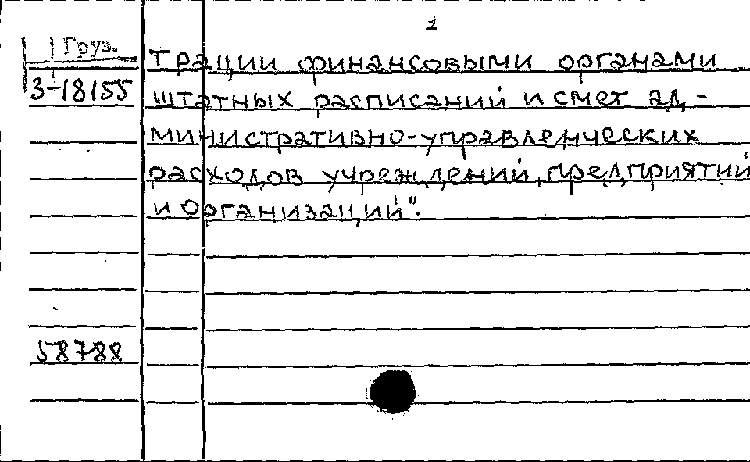 1
Груз.
трации финансовыми органами
3-18155
штатных расписаний и смет ад-
министративно-управленческих
расходов учреждений, предприятий
и организаций".
58788